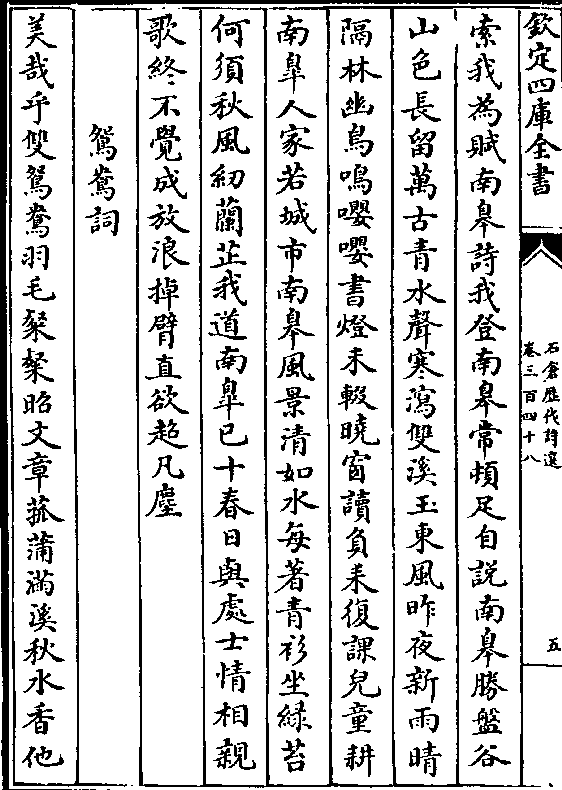 欽定四庫全書
石倉歴代詩選
卷三百四十八
五
索我為賦南皋詩我登南皋常頓足自説南皋勝盤谷
山色長留萬古青水聲寒瀉雙溪玉東風昨夜新雨晴
隔林幽鳥鳴嚶嚶書燈未輟曉窗讀負耒復課兒童耕
南皐人家若城市南皋風景清如水每著青衫坐緑苔
何須秋風紉蘭芷我道南皐已十春日與處士情相親
歌終不覺成放浪掉臂直欲超凡塵
鴛鴦詞
美哉乎雙鴛鴦羽毛粲粲昭文章菰蒲滿溪秋水香他